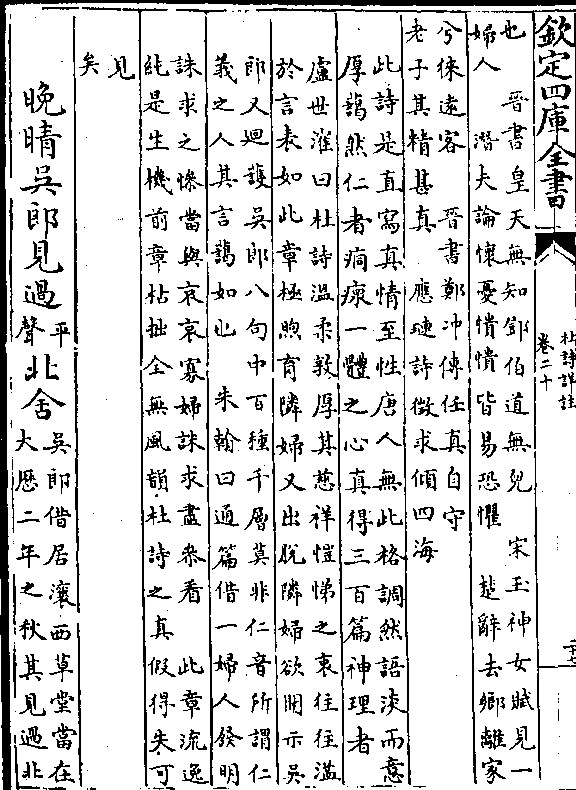 欽定四庫全書
杜詩詳註
卷二十
二十七
也　晉書皇天無知鄧伯道無兒　宋玉神女賦見一
婦人　潛夫論懷憂憒憒皆易恐懼　楚辭去鄉離家
兮徠遠客　晉書鄭冲傳任真自守
老子其精甚真　應璉詩徵求傾四海
此詩是直寫真情至性唐人無此格調然語淡而意
厚藹然仁者痌瘝一體之心真得三百篇神理者
盧世㴶曰杜詩溫柔敦厚其慈祥愷悌之衷往往溢
於言表如此章極煦育隣婦又出脫隣婦欲開示吳
郎又迴護吳郎八句中百種千層莫非仁音所謂仁
義之人其言藹如也　朱翰曰通篇借一婦人發明
誅求之慘當與哀哀寡婦誅求盡叅看　此章流逸
純是生機前章枯拙全無風韻杜詩之真假得失可
見
矣
晚晴吳郎見過平聲北舍吳郎借居瀼西草堂當在
大厯二年之秋其見過北